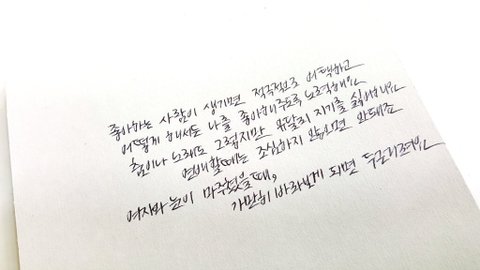 좋아하는 사람이 생기면 적극적으로 어택하고
어떻게 해서든 나를 좋아해주도록 노력해요
춤이나 노래도 그렇지만 유달리 지기를 싫어해요
연애할때는 조심하지 않으면 안돼죠
여자와 눈이 마주쳤을때,
가만히 바라보게 되면 두근거려요